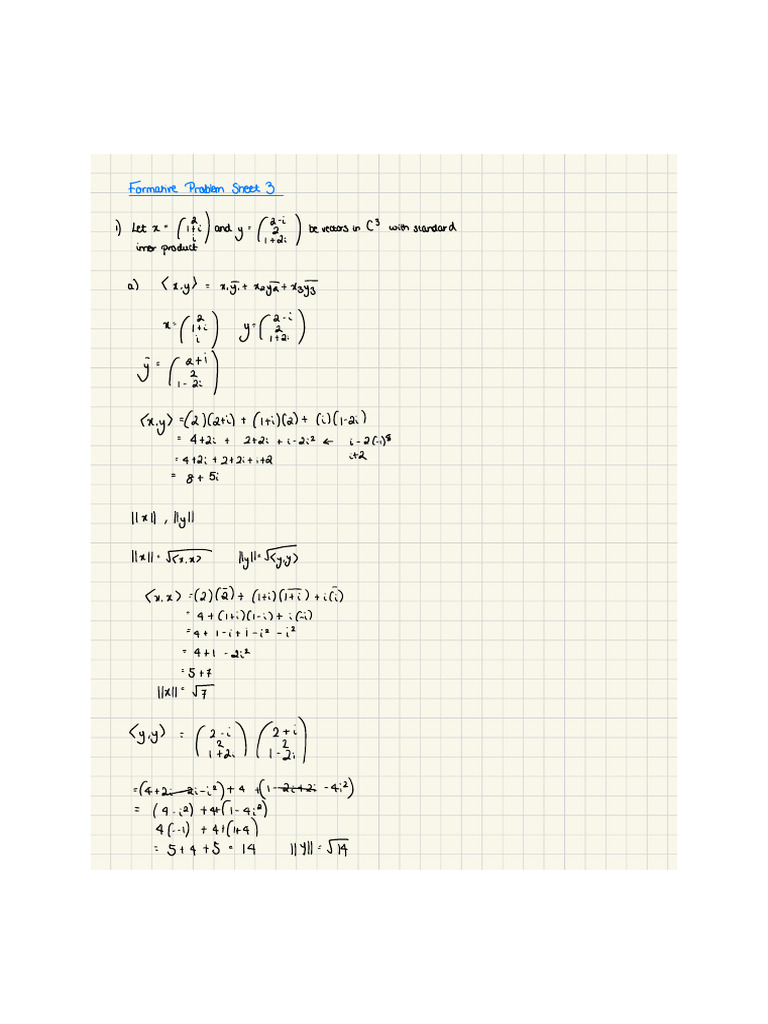 Formative Problem Sheet 3
1) Let x = (2, 1+i, i) and y = (2-i, 2, 1+2i) be vectors in C³ with standard
inner product
a) ⟨x,y⟩ = x₁ȳ₁ + x₂ȳ₂ + x₃ȳ₃
x = (2, 1+i, i) y = (2-i, 2, 1+2i)
ȳ = (2+i, 2, 1-2i)
⟨x,y⟩ = (2)(2+i) + (1+i)(2) + (i)(1-2i)
= 4+2i + 2+2i + i-2i² ← i-2(-1)
= 4+2i+2+2i+i+2 i+2
= 8+5i
||x|| , ||y||
||x|| = √⟨x,x⟩ ||y|| = √⟨y,y⟩
⟨x,x⟩ = (2)(2̄) + (1+i)(1+i)‾ + i(ī)
= 4+(1+i)(1-i)+i(-i)
= 4+ 1-i+i-i² -i²
= 4+1 -2i²
= 5+7
||x|| = √7
⟨y,y⟩ = (2-i, 2, 1+2i) (2+i, 2, 1-2i)
= (4+2i-2i-i²)+4+(1-2i+2i-4i²)
= (4-i²)+4+(1-4i²)
4(--1) +4+(1+4)
= 5+4+5 = 14 ||y|| = √14